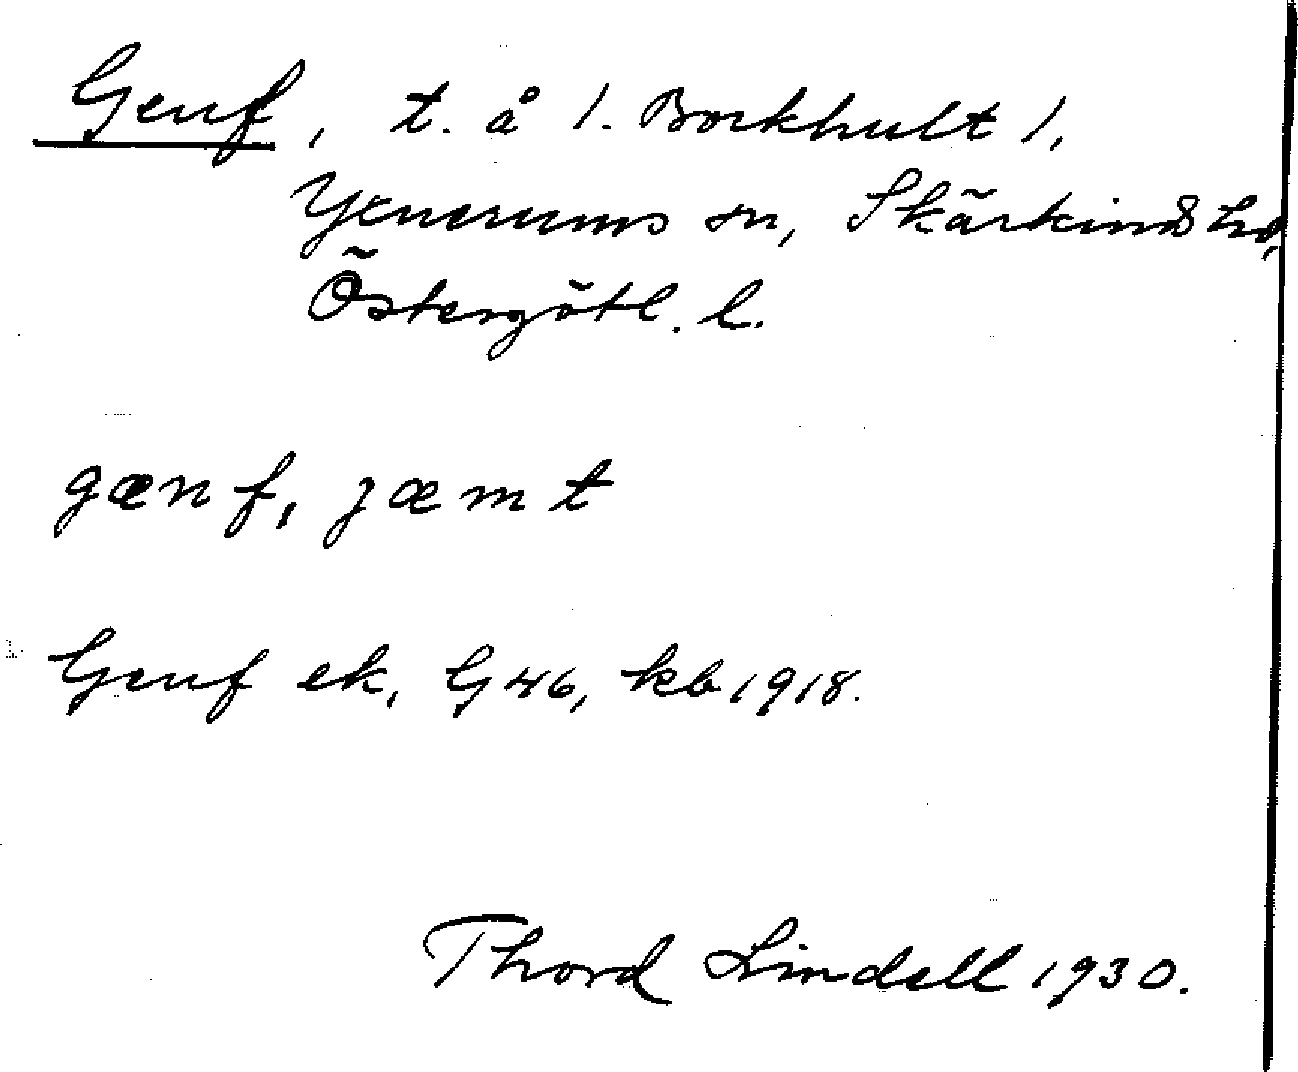 Genf, t. å 1. Borkhult 1,
Yxnerums sn, Skärkinds hd,
Östergötl. l.
gænf, jæmt
Genf ek. G46, kb 1918.
Thord Lindell 1930.